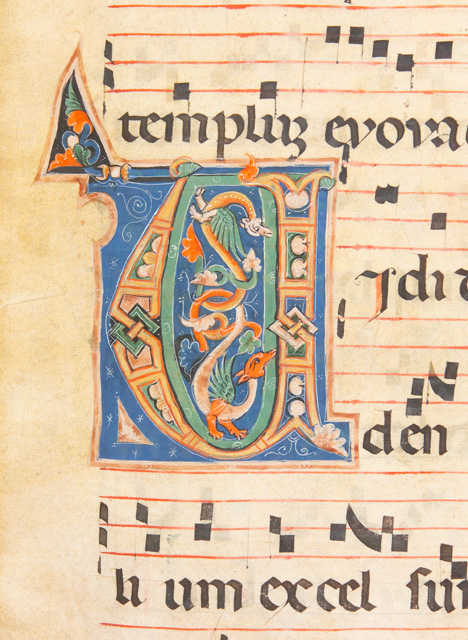 templuʒ evova
V idi
den
ti um excel sum